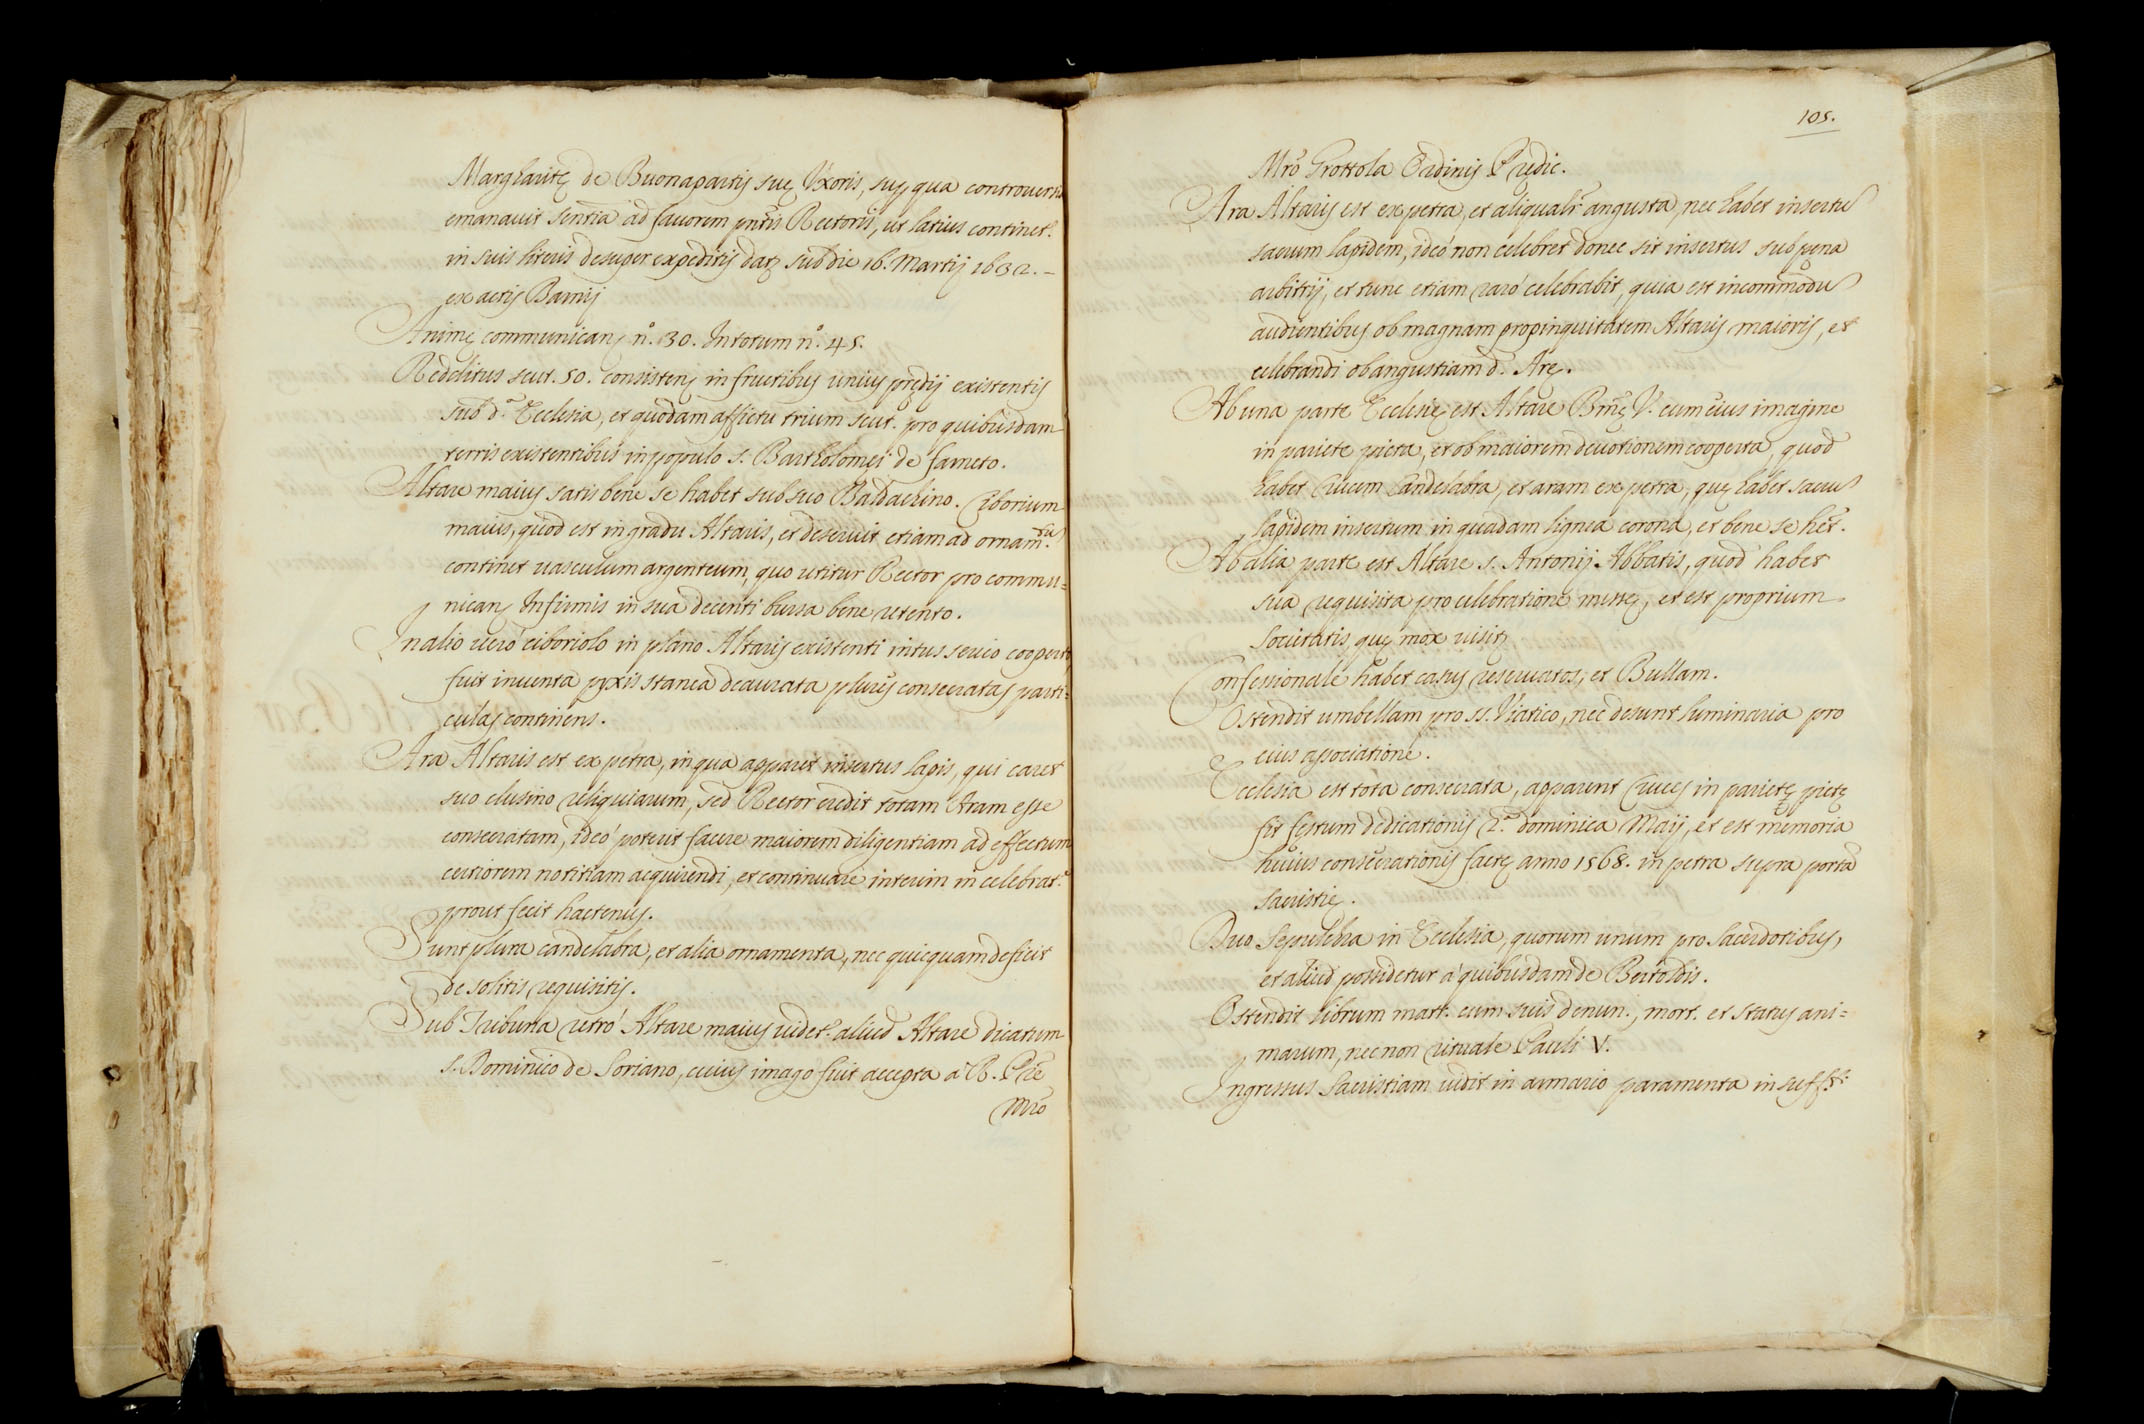 Margharitę de Buonapartis suę Vxoris, super qua controuersia
emanauit sentia ad fauorem pntis Rectoris, ut latius continet.
in suis literis desuper expeditis datę sub die 16. Martij 1632. –
ex actis Barnij
Animę communican. nº. 30. In totum nº. 45.
Redditus scut. 50. consistens in fructibus unius prędij existentis
sub d.ª Ecclesia, et quodam affictu trium scut. pro quibusdam
terris existentibus in populo s. Bartholomei de Farneto.
Altare maius satis bene se habet sub suo Baldachino. Ciborium
maius, quod est in gradu Altaris, et deseruit etiam ad ornam.tu
continet uasculum argenteum, quo utitur Rector pro commu=
nican. Infirmis in sua decenti bursa bene retento.
In alio uerò ciboriolo in plano Altaris existenti intus serico cooperto
fuit inuenta pyxis stanea deaurata plures consecratas parti=
culas continens.
Ara Altaris est ex petra, in qua apparet insertus lapis, qui caret
suo clusino reliquiarum, sed Rector credit totam Aram esse
consecratam, ideò poterit facere maiorem diligentiam ad effectum
certiorem notitiam acquirendi, et continuare interim in celebrat.e
prout fecit hactenus.
Sunt plura candelabra, et alia ornamenta, nec quicquam deficit
de solitis requisitis.
Sub Tribuna retrò Altare maius uidet. aliud Altare dicatum
s. Dominico de Soriano, cuius imago fuit accepta à R. Pre
Mro
105.
Mrõ Grottola Ordinis Predic.
Ara Altaris est ex petra, et aliqualr angusta, nec habet insertu
sacrum lapidem, ideò non celebret donec sit insertus sub pena
arbitrij, et tunc etiam rarò celebrabit, quia est incommodu
audientibus ob magnam propinquitatem Altaris maioris, et
celebrandi ob angustiam d. Arę.
Ab una parte Ecclesię est Altare Bmę V. cum eius imagine
in pariete picta, et ob maiorem deuotionem cooperta, quod
habet Crucem Candelabra, et aram ex petra, quę habet sacru
lapidem insertum in quadam lignea corona, et bene se het.
Ab alia parte est Altare s. Antonij Abbatis, quod habet
sua requisita pro celebratione missę, et est proprium
Societatis, quę mox uisit.
Confessionale habet casus reseruatos, et Bullam.
Ostendit umbellam pro ss. Viatico, nec desunt luminaria pro
eius associatione.
Ecclesia est tota consecrata, apparent Cruces in parietę pictę
fit festum dedicationis 2.ª dominica Maij, et est memoria
huius consecrationis factę anno 1568. in petra supra porta
Sacristię.
Duo Sepulchra in Ecclesia, quorum unum pro Sacerdotibus,
et aliud possidetur à quibusdam de Bertoldis.
Ostendit librum matr. cum suis denun., mort. et status ani=
marum, nec non rituale Pauli V.
Ingressus Sacristiam uidit in armario paramenta in suff.ti